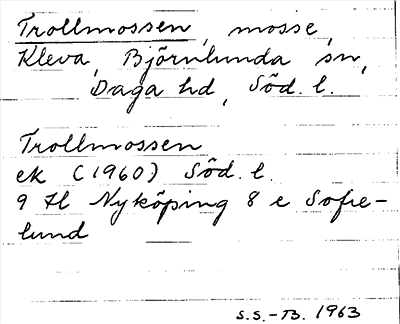 Trollmossen, mosse,
Kleva, Björnlunda sn,
Daga hd, Söd. l.
Trollmossen
ek (1960) Söd. l.
9 H Nyköping 8 e Sofie-
lund
S.S.-B. 1963